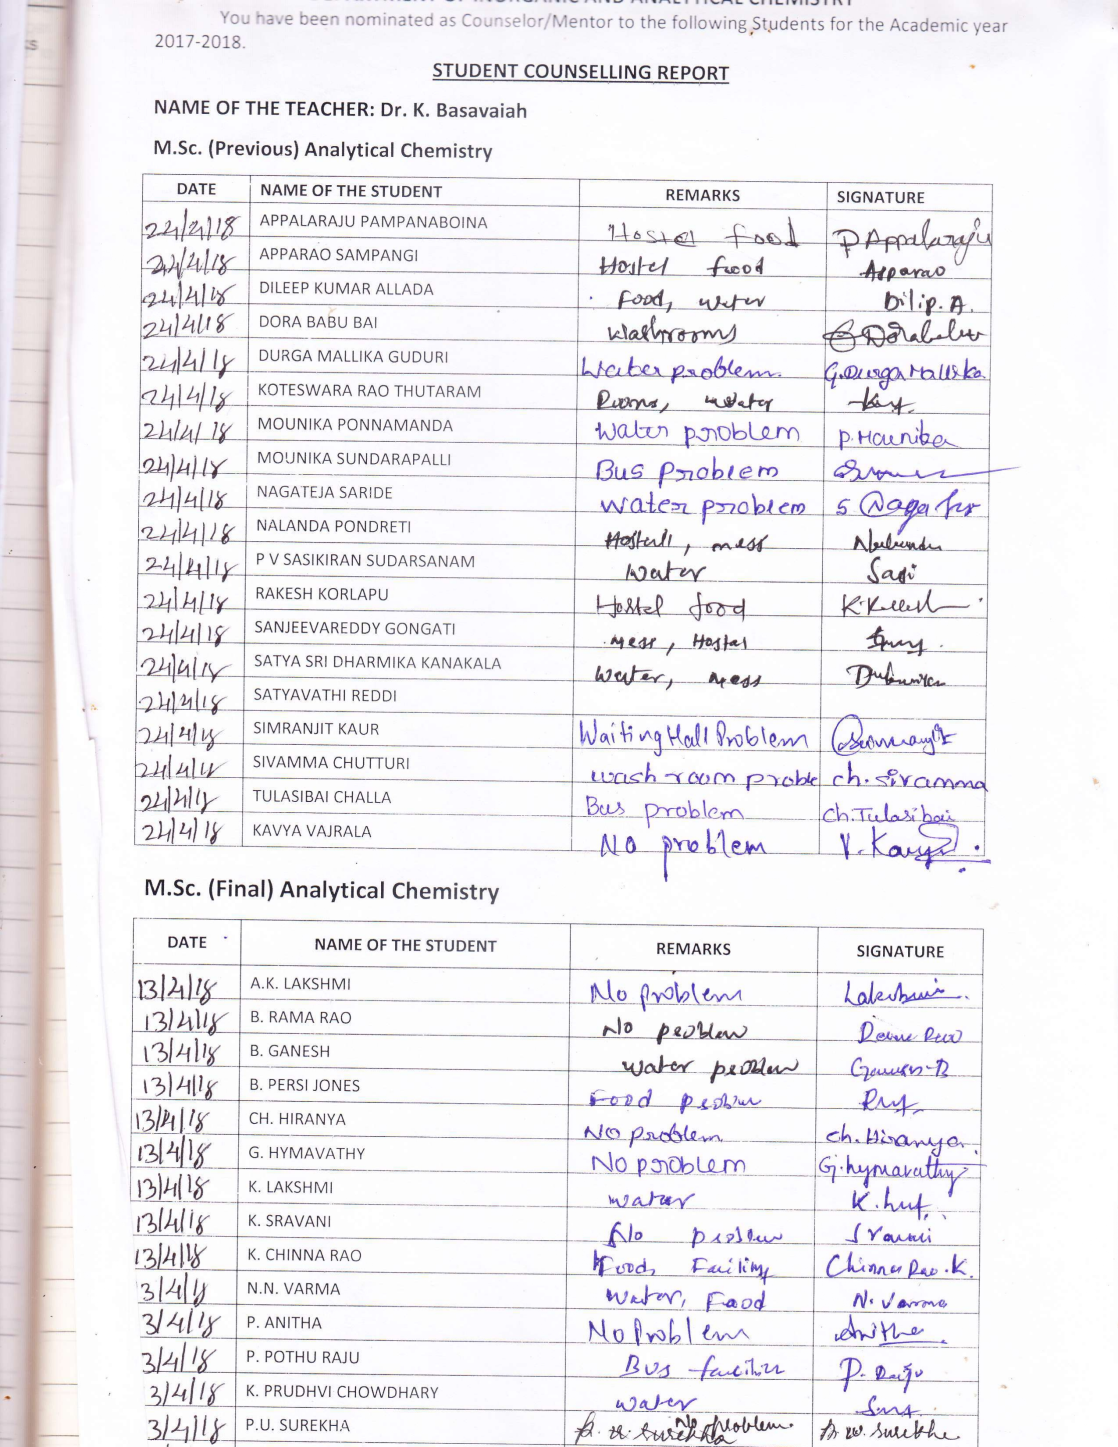 DEPARTMENT OF INORGANIC AND ANALYTICAL CHEMISTRY
You have been nominated as Counselor/Mentor to the following Students for the Academic year
2017-2018.
STUDENT COUNSELLING REPORT
NAME OF THE TEACHER: Dr. K. Basavaiah
M.Sc. (Previous) Analytical Chemistry
DATE NAME OF THE STUDENT REMARKS SIGNATURE
24/4/18 APPALARAJU PAMPANABOINA Hostel food P Appalaraju
24/4/18 APPARAO SAMPANGI Hostel food Apparao
24/4/18 DILEEP KUMAR ALLADA Food, water Dilip. A.
24/4/18 DORA BABU BAI Washrooms Dorababu
24/4/18 DURGA MALLIKA GUDURI Water problem. G.Durga Mallika
24/4/18 KOTESWARA RAO THUTARAM Rooms, water
24/4/18 MOUNIKA PONNAMANDA Water problem P. Mounika
24/4/18 MOUNIKA SUNDARAPALLI Bus problem
24/4/18 NAGATEJA SARIDE Water problem S Naga
24/4/18 NALANDA PONDRETI Hostel, mess
24/4/18 P V SASIKIRAN SUDARSANAM Water Sasi
24/4/18 RAKESH KORLAPU Hostel food
24/4/18 SANJEEVAREDDY GONGATI mess, Hostel
24/4/18 SATYA SRI DHARMIKA KANAKALA Water, mess
24/4/18 SATYAVATHI REDDI
24/4/18 SIMRANJIT KAUR Waiting Hall Problem
24/4/18 SIVAMMA CHUTTURI wash room proble ch. sivamma
24/4/18 TULASIBAI CHALLA Bus problem Ch.Tulasibai
24/4/18 KAVYA VAJRALA No problem V. Kavya
M.Sc. (Final) Analytical Chemistry
DATE NAME OF THE STUDENT REMARKS SIGNATURE
13/4/18 A.K. LAKSHMI No problem Lakshmi
13/4/18 B. RAMA RAO No problem Rama Rao
13/4/18 B. GANESH water problem Ganesh-B
13/4/18 B. PERSI JONES Food problem
13/4/18 CH. HIRANYA No problem ch. Hiranya.
13/4/18 G. HYMAVATHY No problem G. hymavathy
13/4/18 K. LAKSHMI water
13/4/18 K. SRAVANI No problem Sravani
13/4/18 K. CHINNA RAO Food, Facility Chinna Rao. K.
3/4/18 N.N. VARMA Water, Food N. Varma
3/4/18 P. ANITHA No Problem Anitha
3/4/18 P. POTHU RAJU Bus facility P. Raju
3/4/18 K. PRUDHVI CHOWDHARY water
3/4/18 P.U. SUREKHA No problem. surekha